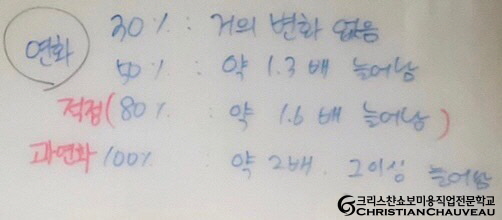 연화
30% : 거의 변화 없음
50% : 약 1.3배 늘어남
적정(80% : 약 1.6배 늘어남)
과연화 100% 약 2배. 그이상 늘어남
크리스챤쇼보미용직업전문학교
CHRISTIANCHAUVEAU